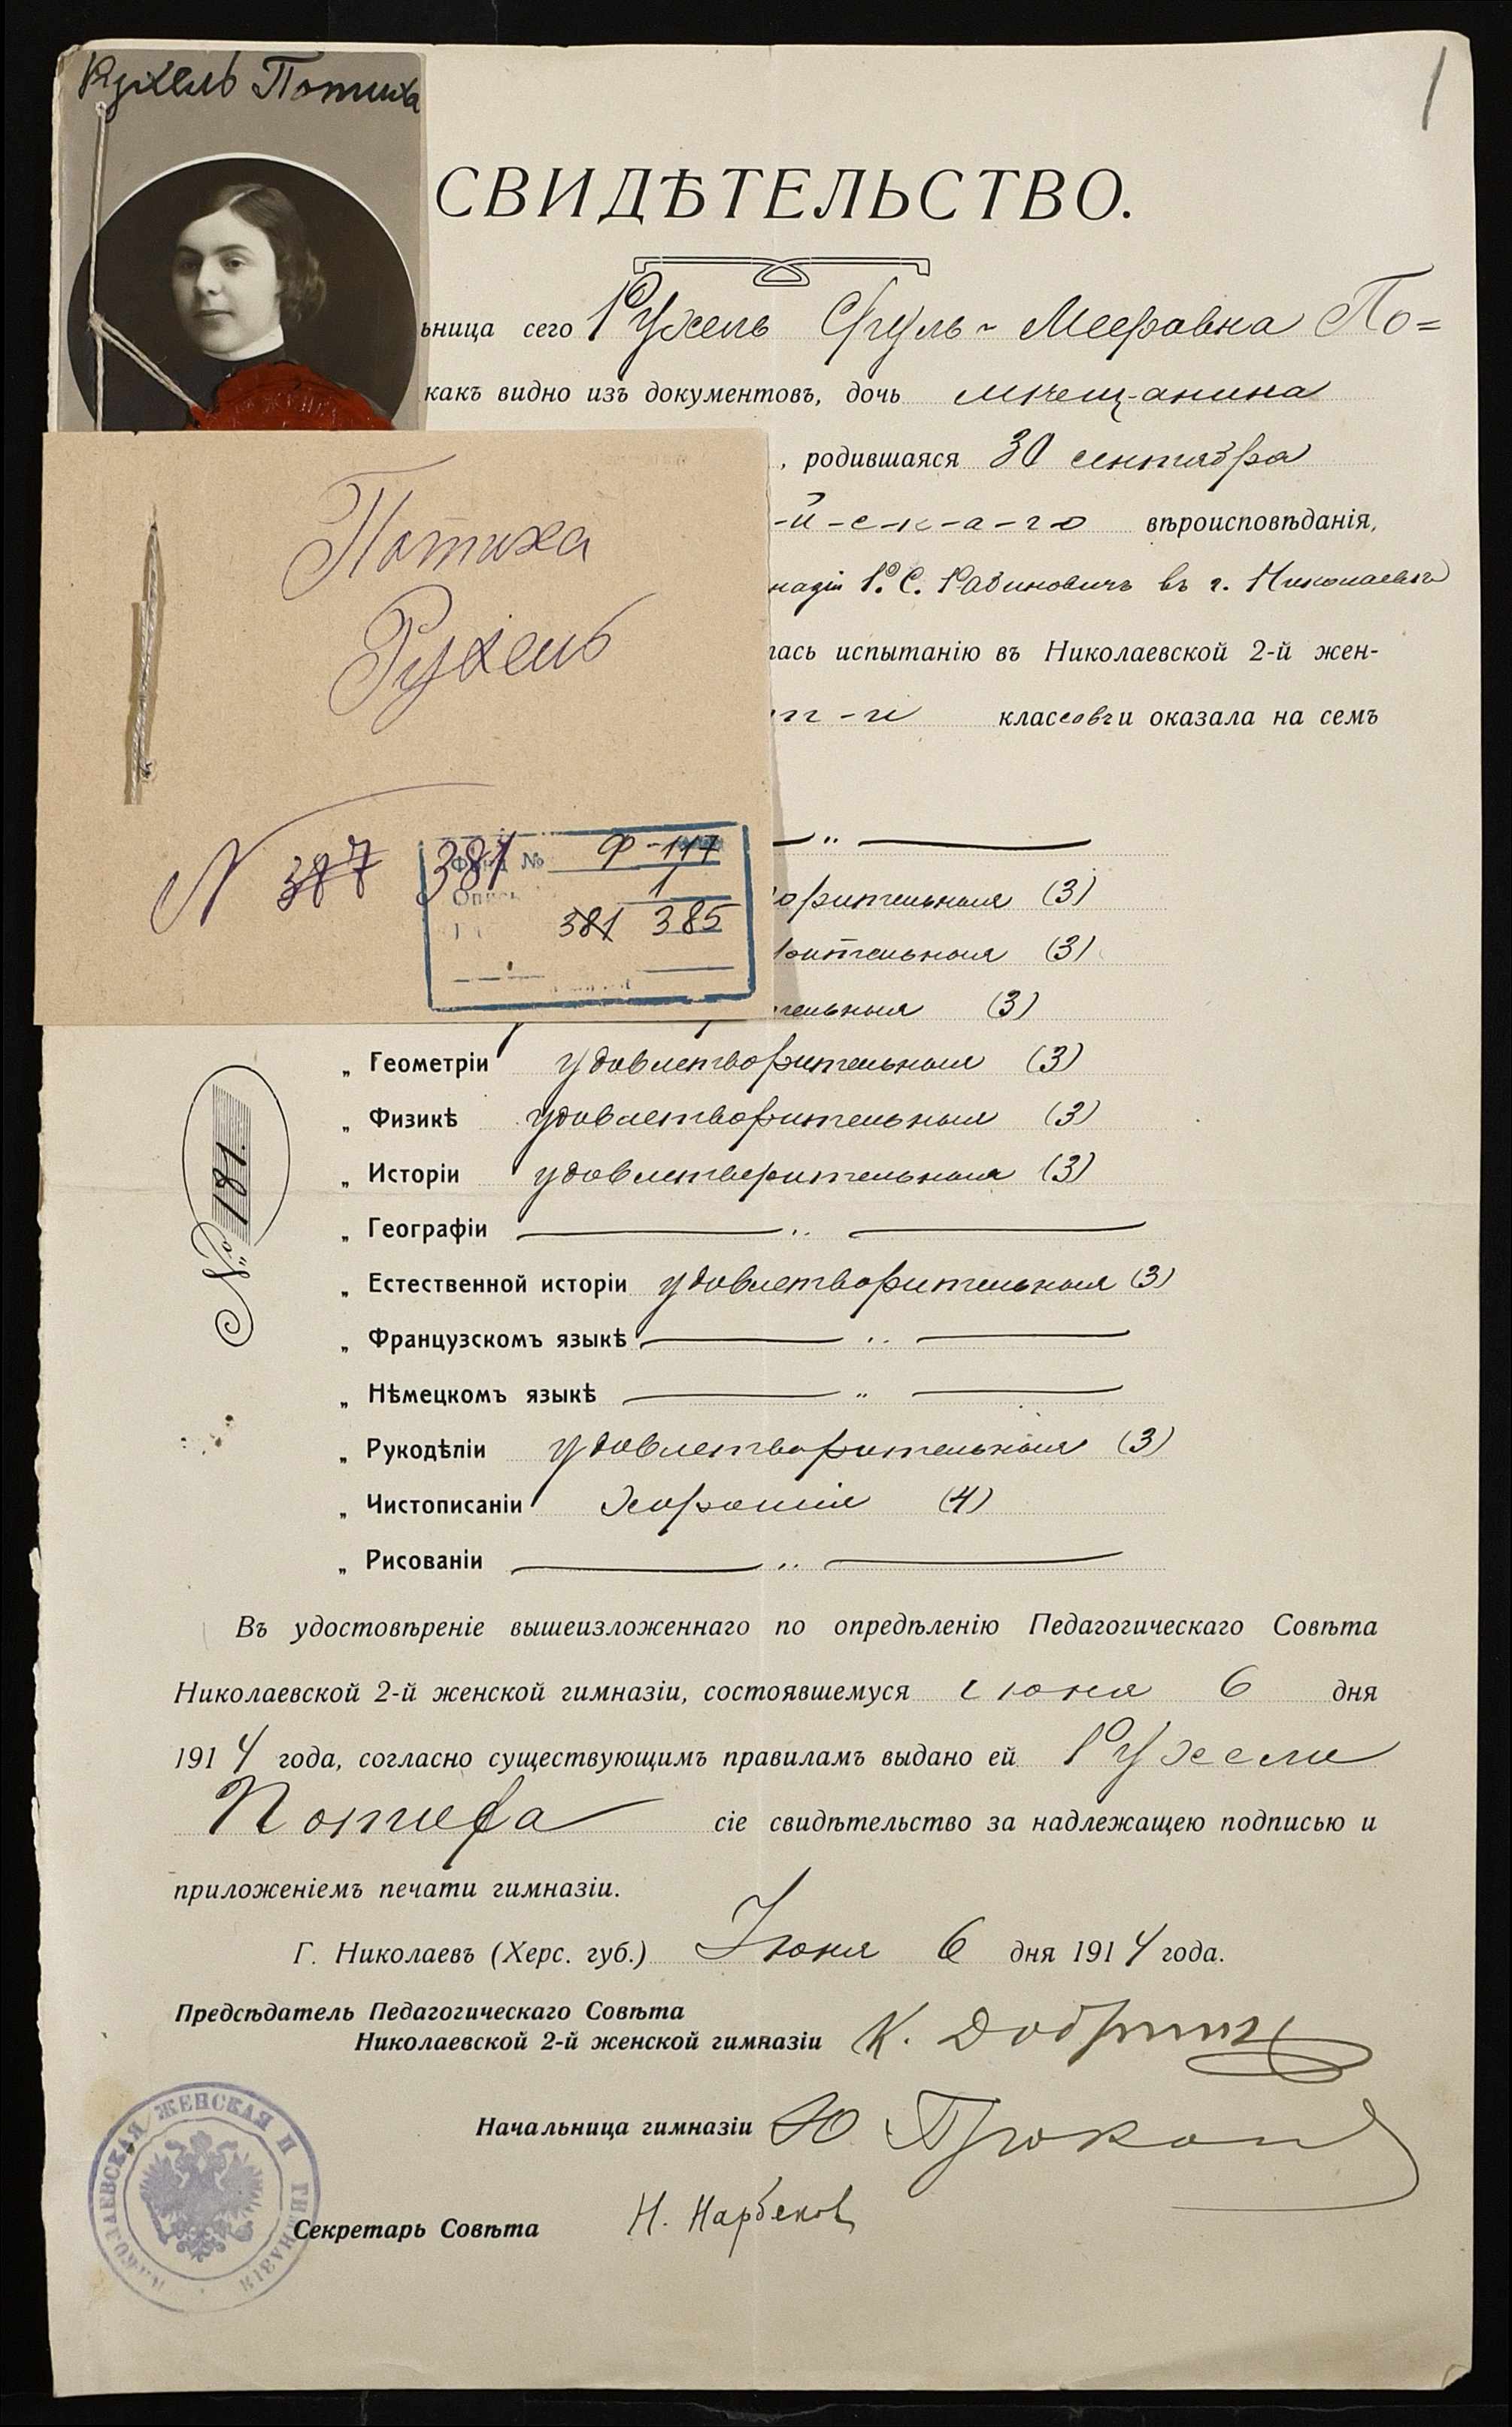 Рухель Потиха
1
СВИДѢТЕЛЬСТВО.
ьница сего Рухель Сруль-Мееровна По=
какъ видно изъ документовъ, дочь мѣщанина
, родившаяся 30 сентября
-й-с-к-а-г-о вѣроисповѣданія,
назіи Р. С. Рабиновичъ въ г. Николаевѣ
лась испытанію въ Николаевской 2-й жен-
классовъ и оказала на семъ
Потиха
Рухель
N 387 381
Фонд № Ф-117
Опись 1
381 385
— " —
орительныя (3)
рительныя (3)
тельныя (3)
„ Геометріи удовлетворительныя (3)
„ Физикѣ удовлетворительныя (3)
„ Исторіи удовлетворительныя (3)
„ Географіи — " —
„ Естественной исторіи удовлетворительныя (3)
„ Французскомъ языкѣ — " —
„ Нѣмецкомъ языкѣ — " —
„ Рукодѣліи удовлетворительныя (3)
„ Чистописаніи хорошія (4)
„ Рисованіи — " —
№ 181.
Въ удостовѣреніе вышеизложеннаго по опредѣленію Педагогическаго Совѣта
Николаевской 2-й женской гимназіи, состоявшемуся іюня 6 дня
1914 года, согласно существующимъ правиламъ выдано ей Рухели
Потиха сіе свидѣтельство за надлежащею подписью и
приложеніемъ печати гимназіи.
Г. Николаевъ (Херс. губ.) Іюня 6 дня 1914 года.
Предсѣдатель Педагогическаго Совѣта
Николаевской 2-й женской гимназіи К.
Начальница гимназіи Ю.
Секретарь Совѣта Н. Нарбеков
НИКОЛАЕВСКАЯ ЖЕНСКАЯ II ГИМНАЗІЯ